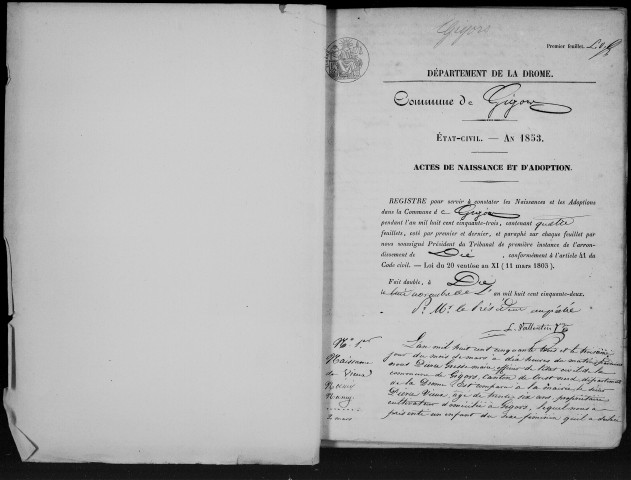 Gigors
Premier feuillet.
DÉPARTEMENT DE LA DROME.
Commune de Gigors
ÉTAT-CIVIL. — AN 1853.
ACTES DE NAISSANCE ET D'ADOPTION.
REGISTRE pour servir à constater les Naissances et les Adoptions
dans la Commune de Gigors
pendant l'an mil huit cent cinquante-trois, contenant quatre
feuillets, coté par premier et dernier, et paraphé sur chaque feuillet par
nous soussigné Président du Tribunal de première instance de l'arron-
dissement de Die, conformément à l'article 41 du
Code civil. — Loi du 20 ventôse an XI (11 mars 1803).
Fait double, à Die
le novembre de l'an mil huit cent cinquante-deux.
Pr. Mr. le Président empêché
L. Vallentin
N° 1er
L'an mil huit cent cinquante trois et le troisième
Naissance
jour du mois de mars à dix heures du matin
de Vieux
nous maire officier de l'état civil de la
commune de Gigors, canton de Crest nord département
Nancy
de la Drome est comparu à la mairie le sieur
Vieux, âgé de trente six ans, propriétaire
cultivateur domicilié à Gigors, lequel nous a
2 mars
présenté un enfant du sexe féminin qu'il a déclaré